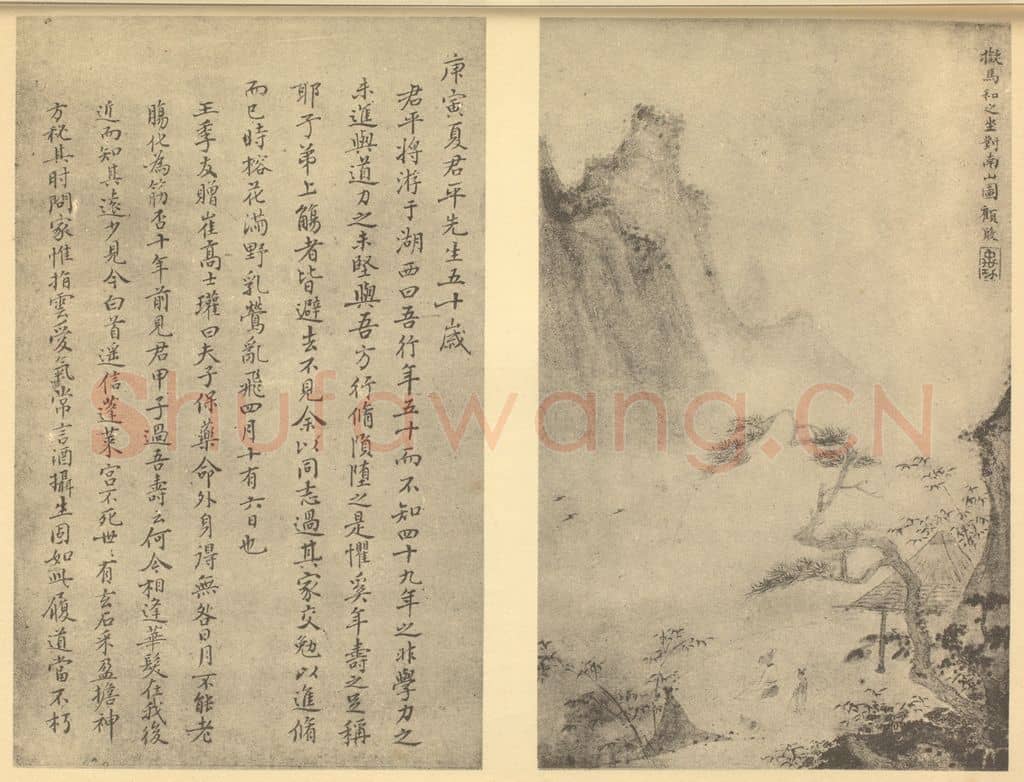 擬馬和之坐對南山圖 顧殷
庚寅夏君平先生五十歲
君平將游于湖西曰吾行年五十而不知四十九年之非學力之
未進與道力之未堅與吾方行脩隕墮之是懼奚年壽之足稱
耶子弟上觴者皆避去不見余以同志過其家交勉以進脩
而已時榕花滿野乳鶯亂飛四月十有六日也
王季友贈崔高士瓘曰夫子保藥命外身得無咎日月不能老
腸化為筋否十年前見君甲子過吾壽云何今相逢華髮在我後
近而知其遠少見今白首遥信蓬萊宮不死世〻有玄石采盈擔神
方秘其时問家惟指雲愛氣常言酒攝生固如此履道當不朽
Shufawang.CN